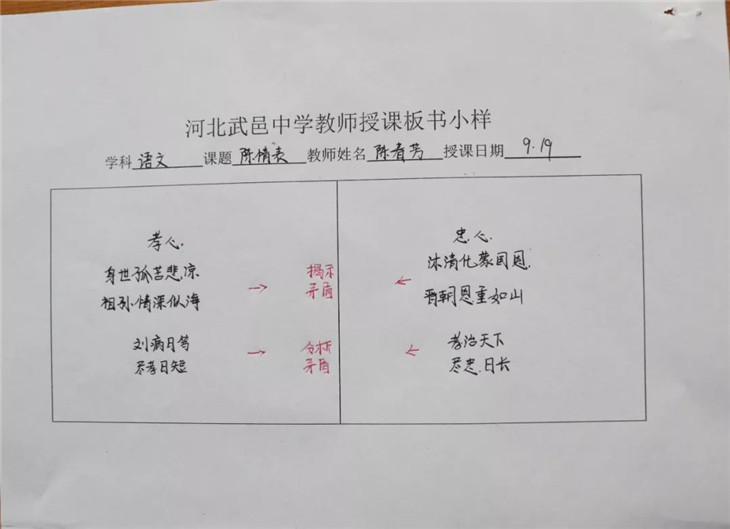 河北武邑中学教师授课板书小样
学科 语文 课题 陈情表 教师姓名 陈春芳 授课日期 9.19
孝心.
身世孤苦悲凉
祖孙情深似海
→ 揭示
矛盾
刘病日笃
尽孝日短
→ 分析
矛盾
忠心.
沐清化蒙国恩.
← 晋朝恩重如山
← 孝治天下
尽忠.日长